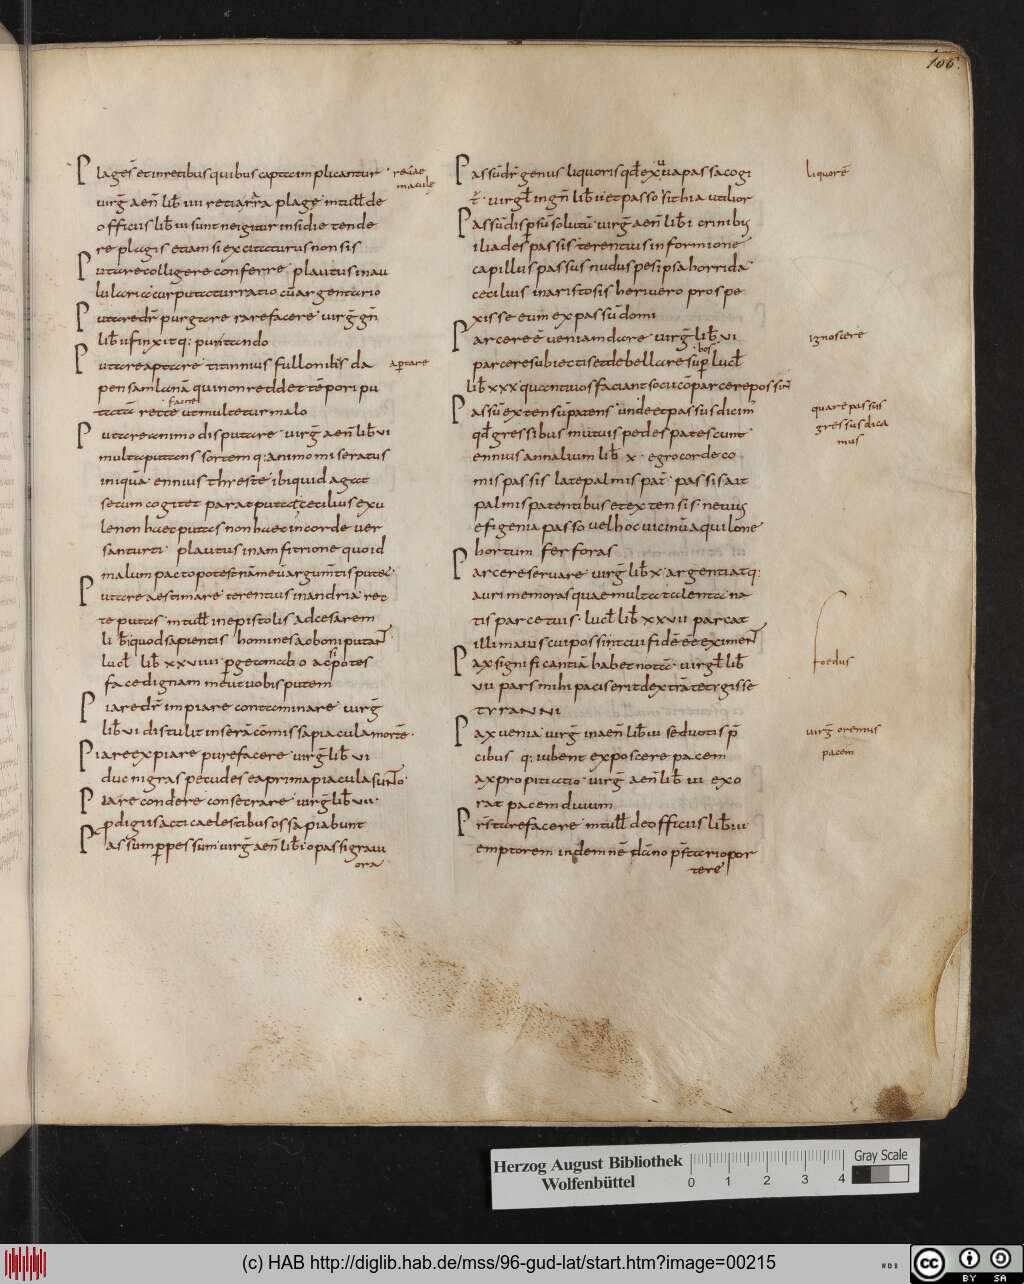 106.
Plages et in retibus quibus capita implicantur
virḡ aeñ lib̄ iiii retia rara plage m̄ tull̄ de
officiis lib̄ iii sunt ne igitur insidie tende
re plagis etiam si excitaturus non sis
Putare colligere conferre plautus in au
lularia cur putatur ratio cū argentario
Putare dr̄ purgare rarefacere virḡ gn̄
lib̄ ii finxitq: putando
Putare aptare titinnius fullonibus da
pensam lanā qui non reddet tēpori pu
tatā recte facite ut multetur malo
Putare animo disputare virḡ aeñ lib̄ vi
multa putans sortemq: animo miseratus
iniquā ennius threste ibi quid agat
secum cogitet parat putat cecilius exu
le non haec putas non haec in corde ver
santur ti plautus in amfitrione quo id
malum pacto potest nā me ū argum̄tis putec
Putare aestimare terentius in andria rec
te putas m̄ tull̄ in epistolis ad cesarem
lib̄ i quod sapientis homines a boni putant
lucl̄ lib̄ xxviiii
face dignam me ut vobis putem
Piare dr̄ impiare contaminare virḡ
lib̄ vi
Piare expiare purefacere virḡ lib̄ vi
duc nigras pecudes ea prima piacula sunto
Piare condere consecrare virḡ lib̄ vii
prodigiis acti caelestibus ossa piabunt
Passum perpessum virḡ aeñ lib̄ i o passi graui
ora
retiae
macule
aptare
Passū dr̄ genus liquoris qd̄ ex uua passa cogi
t̄ virgl̄ in gn̄ lib̄ ii et passo sithia utilior
Passū dispersū solutū virḡ aeñ lib̄ i crinibus
iliades passis terentius in formione
capillus passus nudus pes ipsa horrida
cecilius in aristosis heri vero prospe
xisse eum ex passū domi
Parcere ē veniam dare virḡ lib̄ vi
parcere subiectis et debellare superbos lucl̄
lib̄ xxx quan tuos faciant socii cō parcere possint
Passū extensū patens unde et passus dicim̄
qd̄ gressibus mutuis pedes patescunt
ennius annalium lib̄ x egro corde co
mis passis late palmis pat̄ passis ait
palmis patentibus et extensis nevius
efigenia passo vel hoc vicinū aquilone
hortum fer foras
Parcere servare virḡ lib̄ x argenti atq:
auri memoras quae multa talenta na
tis parce tuis lucl̄ lib̄ xxvii parcat
illi maius cui possint cui fidē
Pax significantiā habet notā virgl̄ lib̄
vii pars mihi pacis erit dextrā tetigisse
tyranni
Pax venia virḡ in aeñ lib̄ iii sed votis p̄
cibusq: iubent exposcere pacem
Pax propitiatio virḡ aeñ lib̄ iii exo
rat pacem divum
Pr̄stare facere m̄ tull̄ de officiis lib̄ iii
emptorem indemnē dāno p̄stari opor
tere
liquorē
ignoscere
quare passus
gressus dica
mus
foedus
virḡ oremus
pacem
Herzog August Bibliothek
Wolfenbüttel
0 1 2 3 4
Gray Scale
(c) HAB http://diglib.hab.de/mss/96-gud-lat/start.htm?image=00215
WDB
CC BY SA